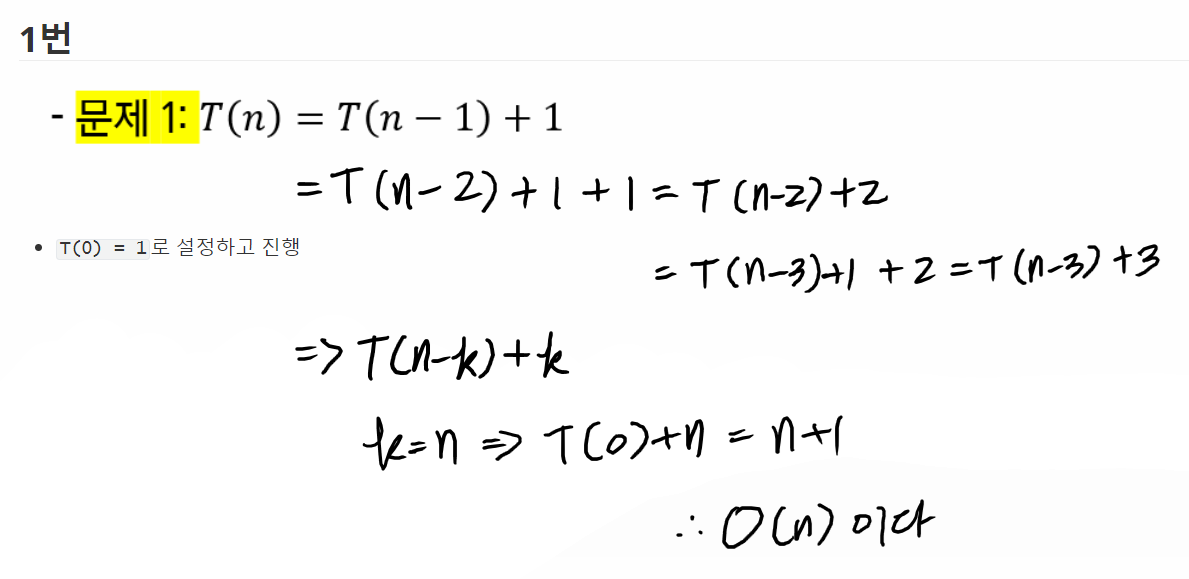 1번
- 문제 1: T(n) = T(n − 1) + 1
= T(n-2)+1+1 = T(n-2)+2
• T(0) = 1로 설정하고 진행
= T(n-3)+1 +2 = T(n-3)+3
=> T(n-k)+k
k=n => T(0)+n = n+1
∴ O(n) 이다